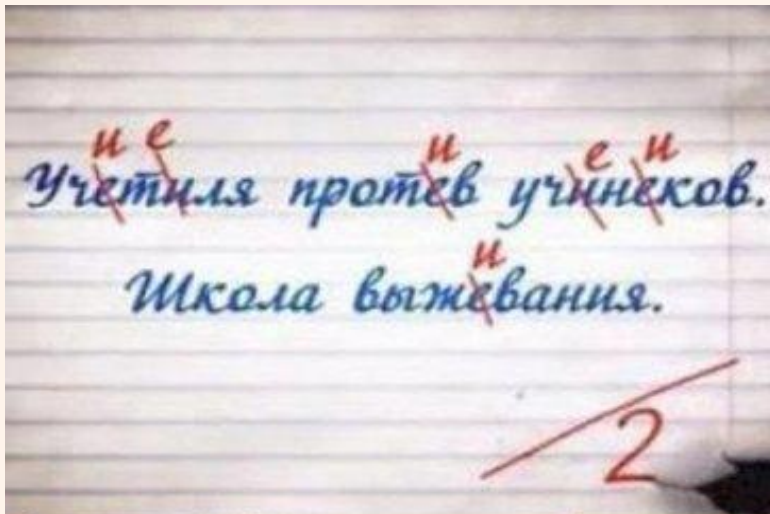 и е и е и
Учетиля протев учинеков.
и
Школа выжевания.
2